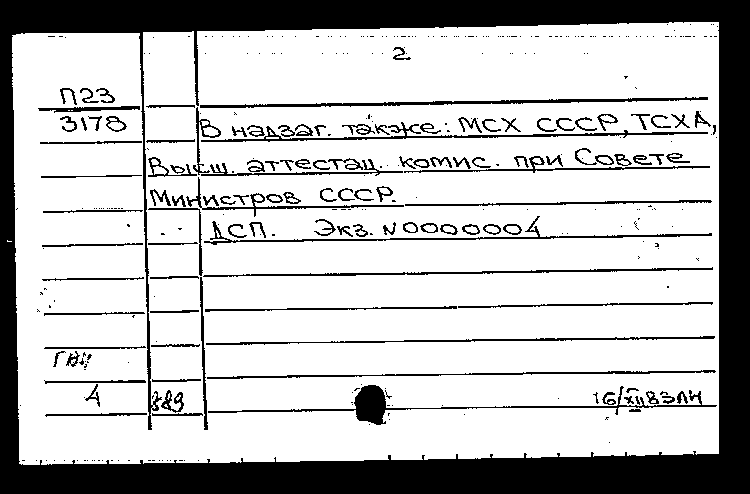 2
П23
3178 В надзаг. также: МСХ СССР, ТСХА,
Высш. аттестац. комис. при Совете
Министров СССР.
ДСП. Экз. N0000004
4 889 16/XII 83 ЛН